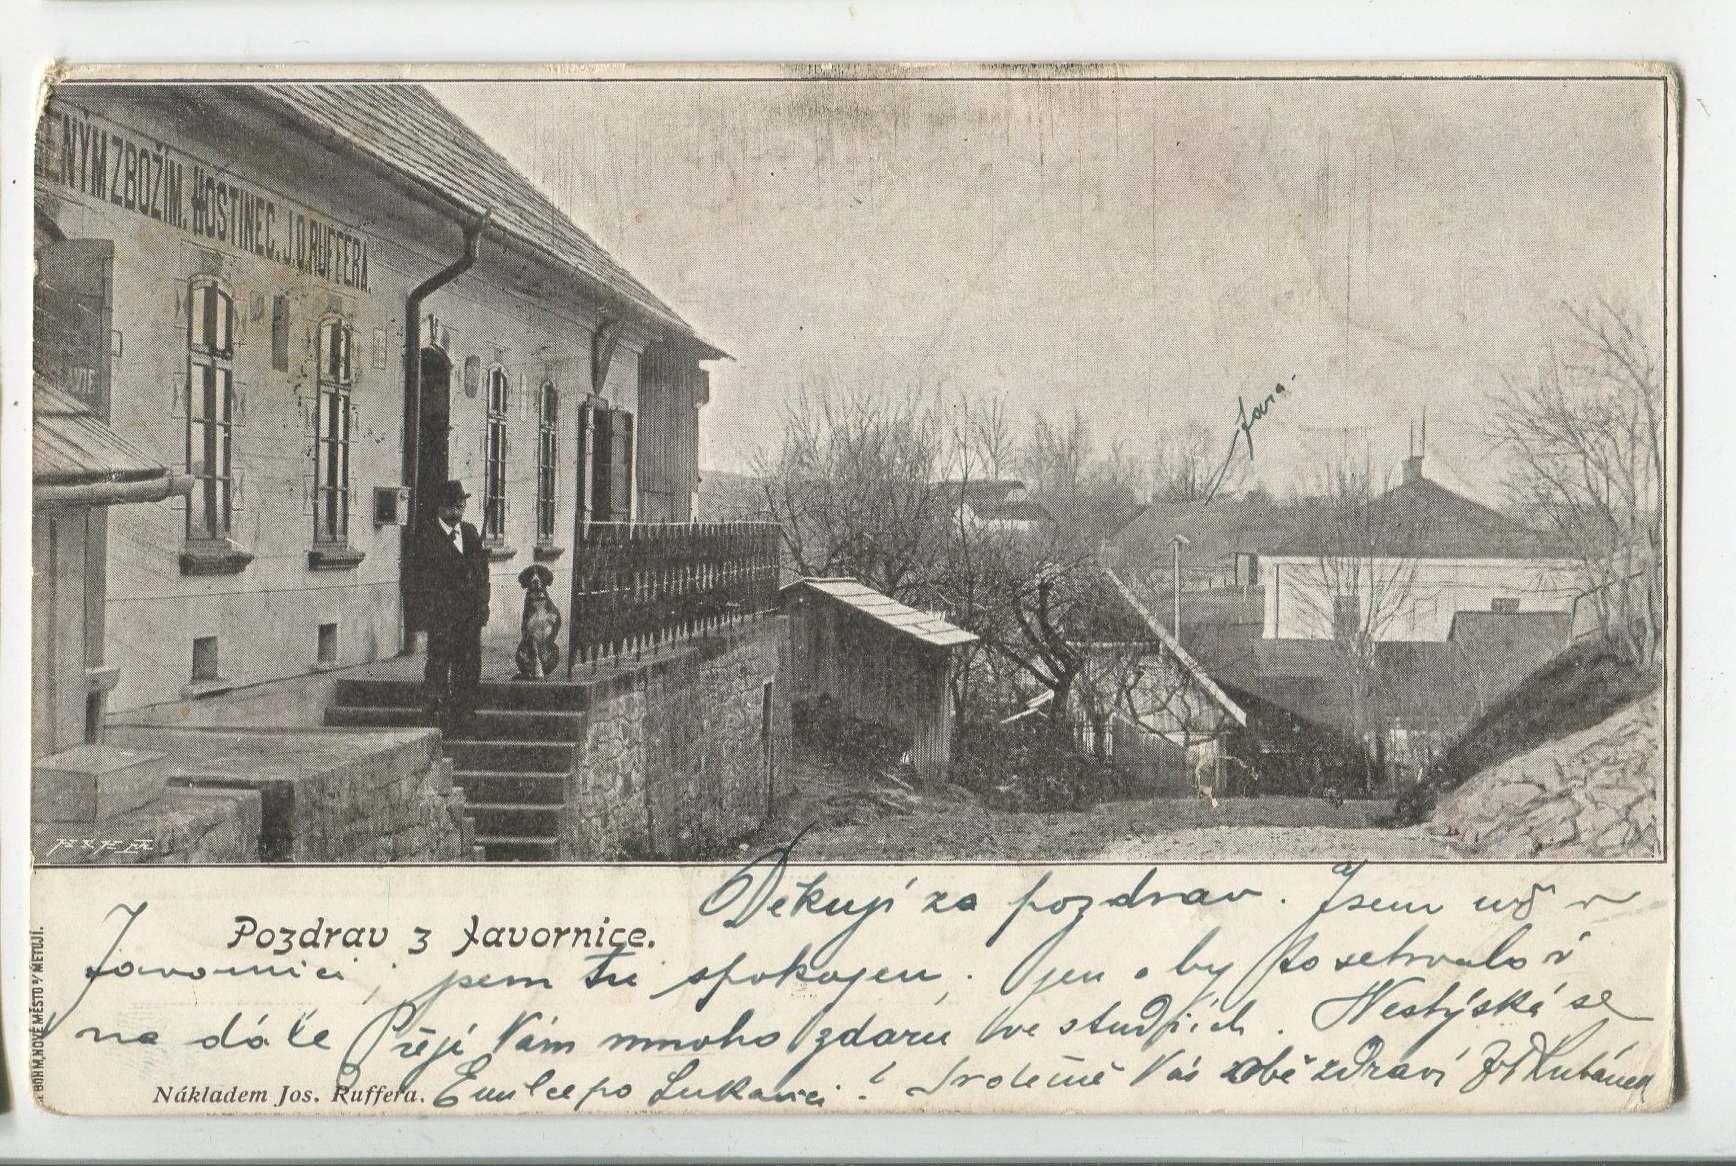 ENÝM ZBOŽÍM. HOSTINEC. J.O. RUFFERA.
fara.
Pozdrav z Javornice.
Děkuji za pozdrav. Jsem už v
Javornici, jsem tu spokojen. jen aby to setrvalo i
na dále Přeji Vám mnoho zdaru ve studiích. Nestýská se
po Lukavici. Srdečně Vás obě zdraví
Nákladem Jos. Ruffera.
BÖHM, NOVÉ MĚSTO n/METUJÍ.